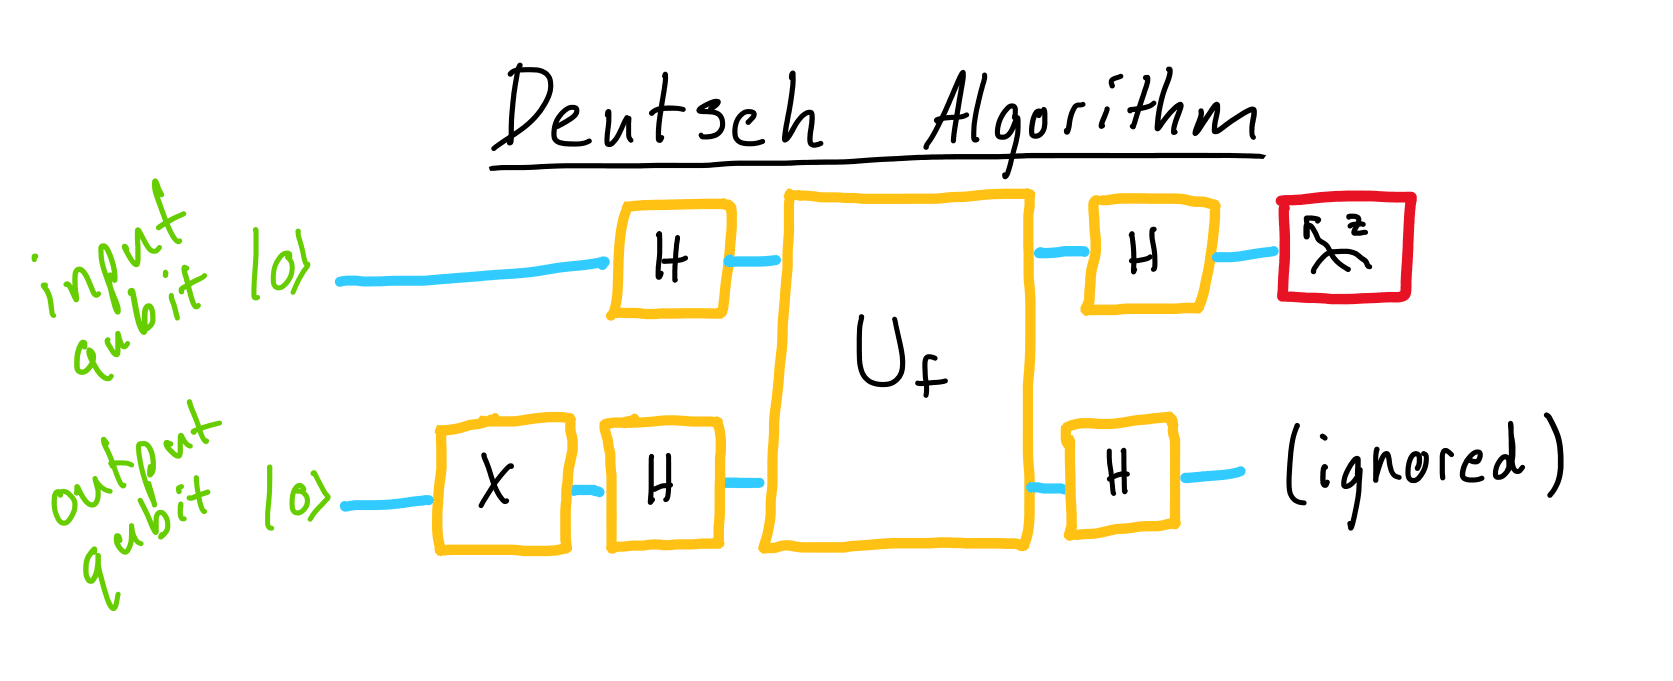 Deutsch Algorithm
input
qubit |0⟩
H
H
z
U_f
output
qubit |0⟩
X
H
H
(ignored)